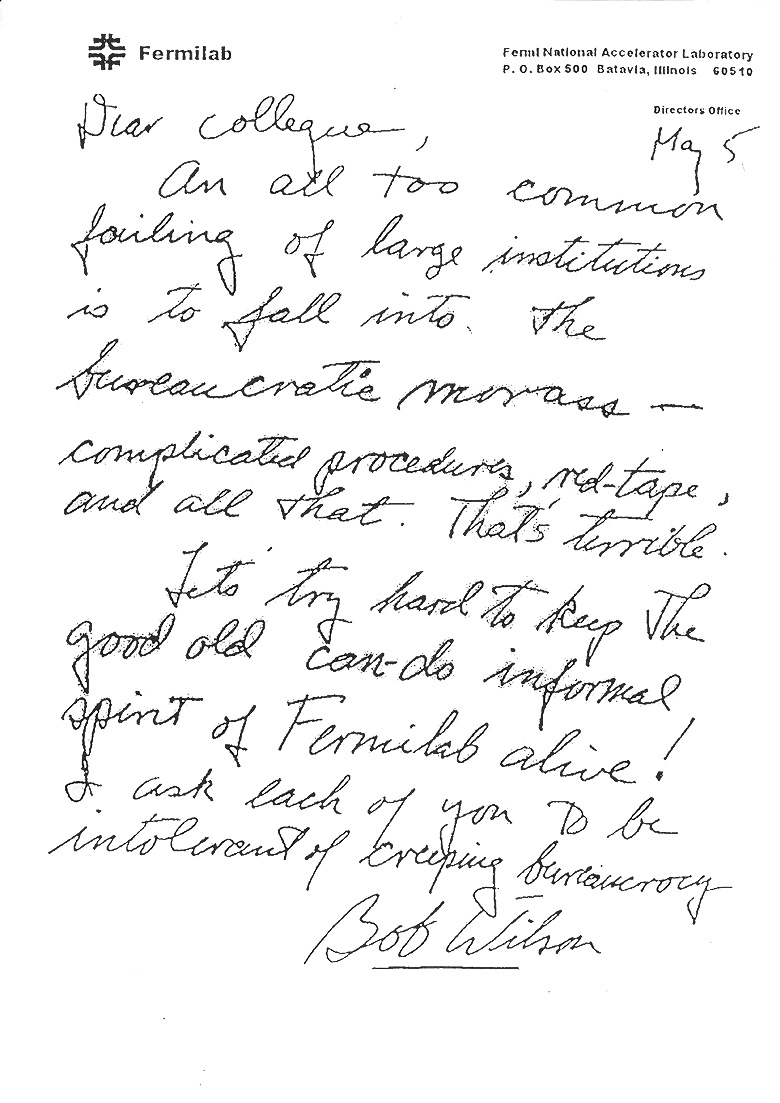 Fermilab
Fermi National Accelerator Laboratory
P. O. Box 500 Batavia, Illinois 60510
Directors Office
May 5
Dear collegue,
An all too common
failing of large institutions
is to fall into the
bureaucratic morass —
complicated procedures, red-tape,
and all that. That's terrible.
Lets' try hard to keep the
good old can-do informal
spirit of Fermilab alive!
I ask each of you to be
intolerant of creeping bureaucrocy
Bob Wilson